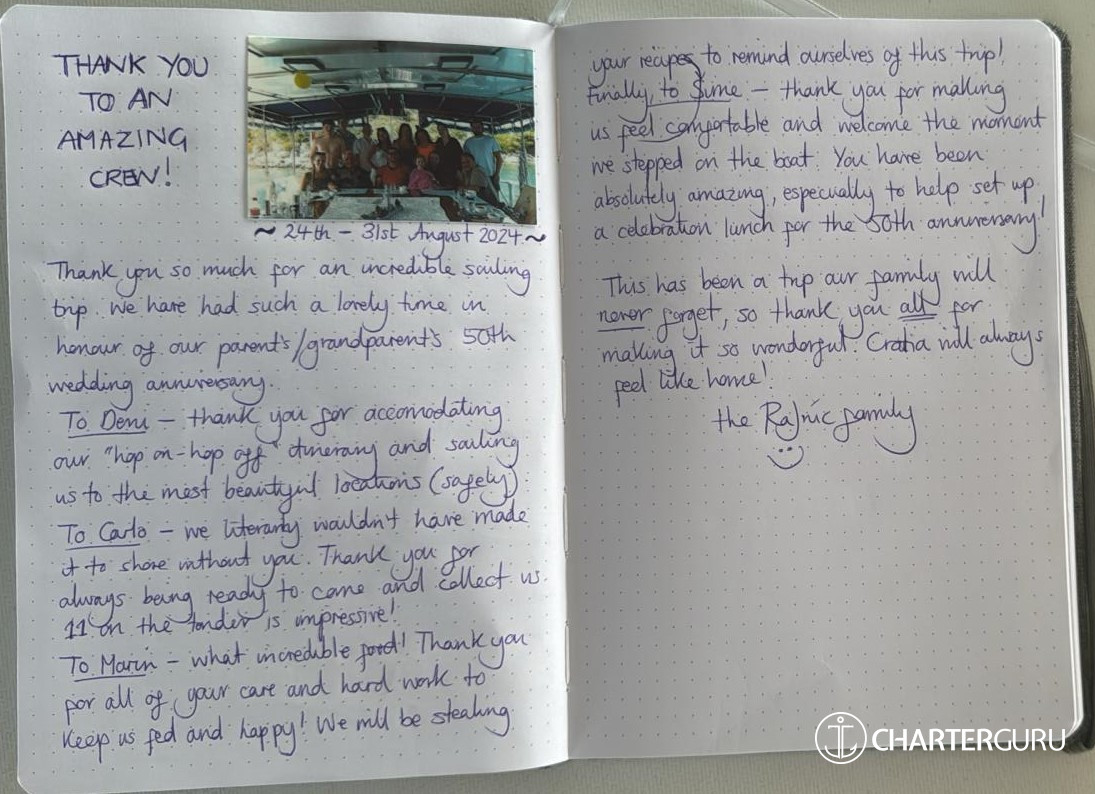 THANK YOU
TO AN
AMAZING
CREW!
~ 24th – 31st August 2024 ~
Thank you so much for an incredible sailing
trip. We have had such a lovely time in
honour of our parent's/grandparent's 50th
wedding anniversary.
To Deni – thank you for accomodating
our "hop on-hop off" itinerary and sailing
us to the most beautiful locations (safely).
To Carlo – we literarly wouldn't have made
it to shore without you. Thank you for
always being ready to come and collect us.
11 on the tender is impressive!
To Marin – what incredible food! Thank you
for all of your care and hard work to
keep us fed and happy! We will be stealing
your recipes to remind ourselves of this trip!
Finally, to Šime – thank you for making
us feel comfortable and welcome the moment
we stepped on the boat. You have been
absolutely amazing, especially to help set up
a celebration lunch for the 50th anniversary!
This has been a trip our family will
never forget, so thank you all for
making it so wonderful. Cratia will always
feel like home!
the Rajnic family
CHARTERGURU